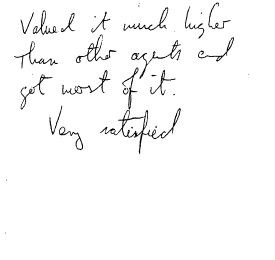 Valued it much higher
than other agents and
got most of it.
Very satisfied